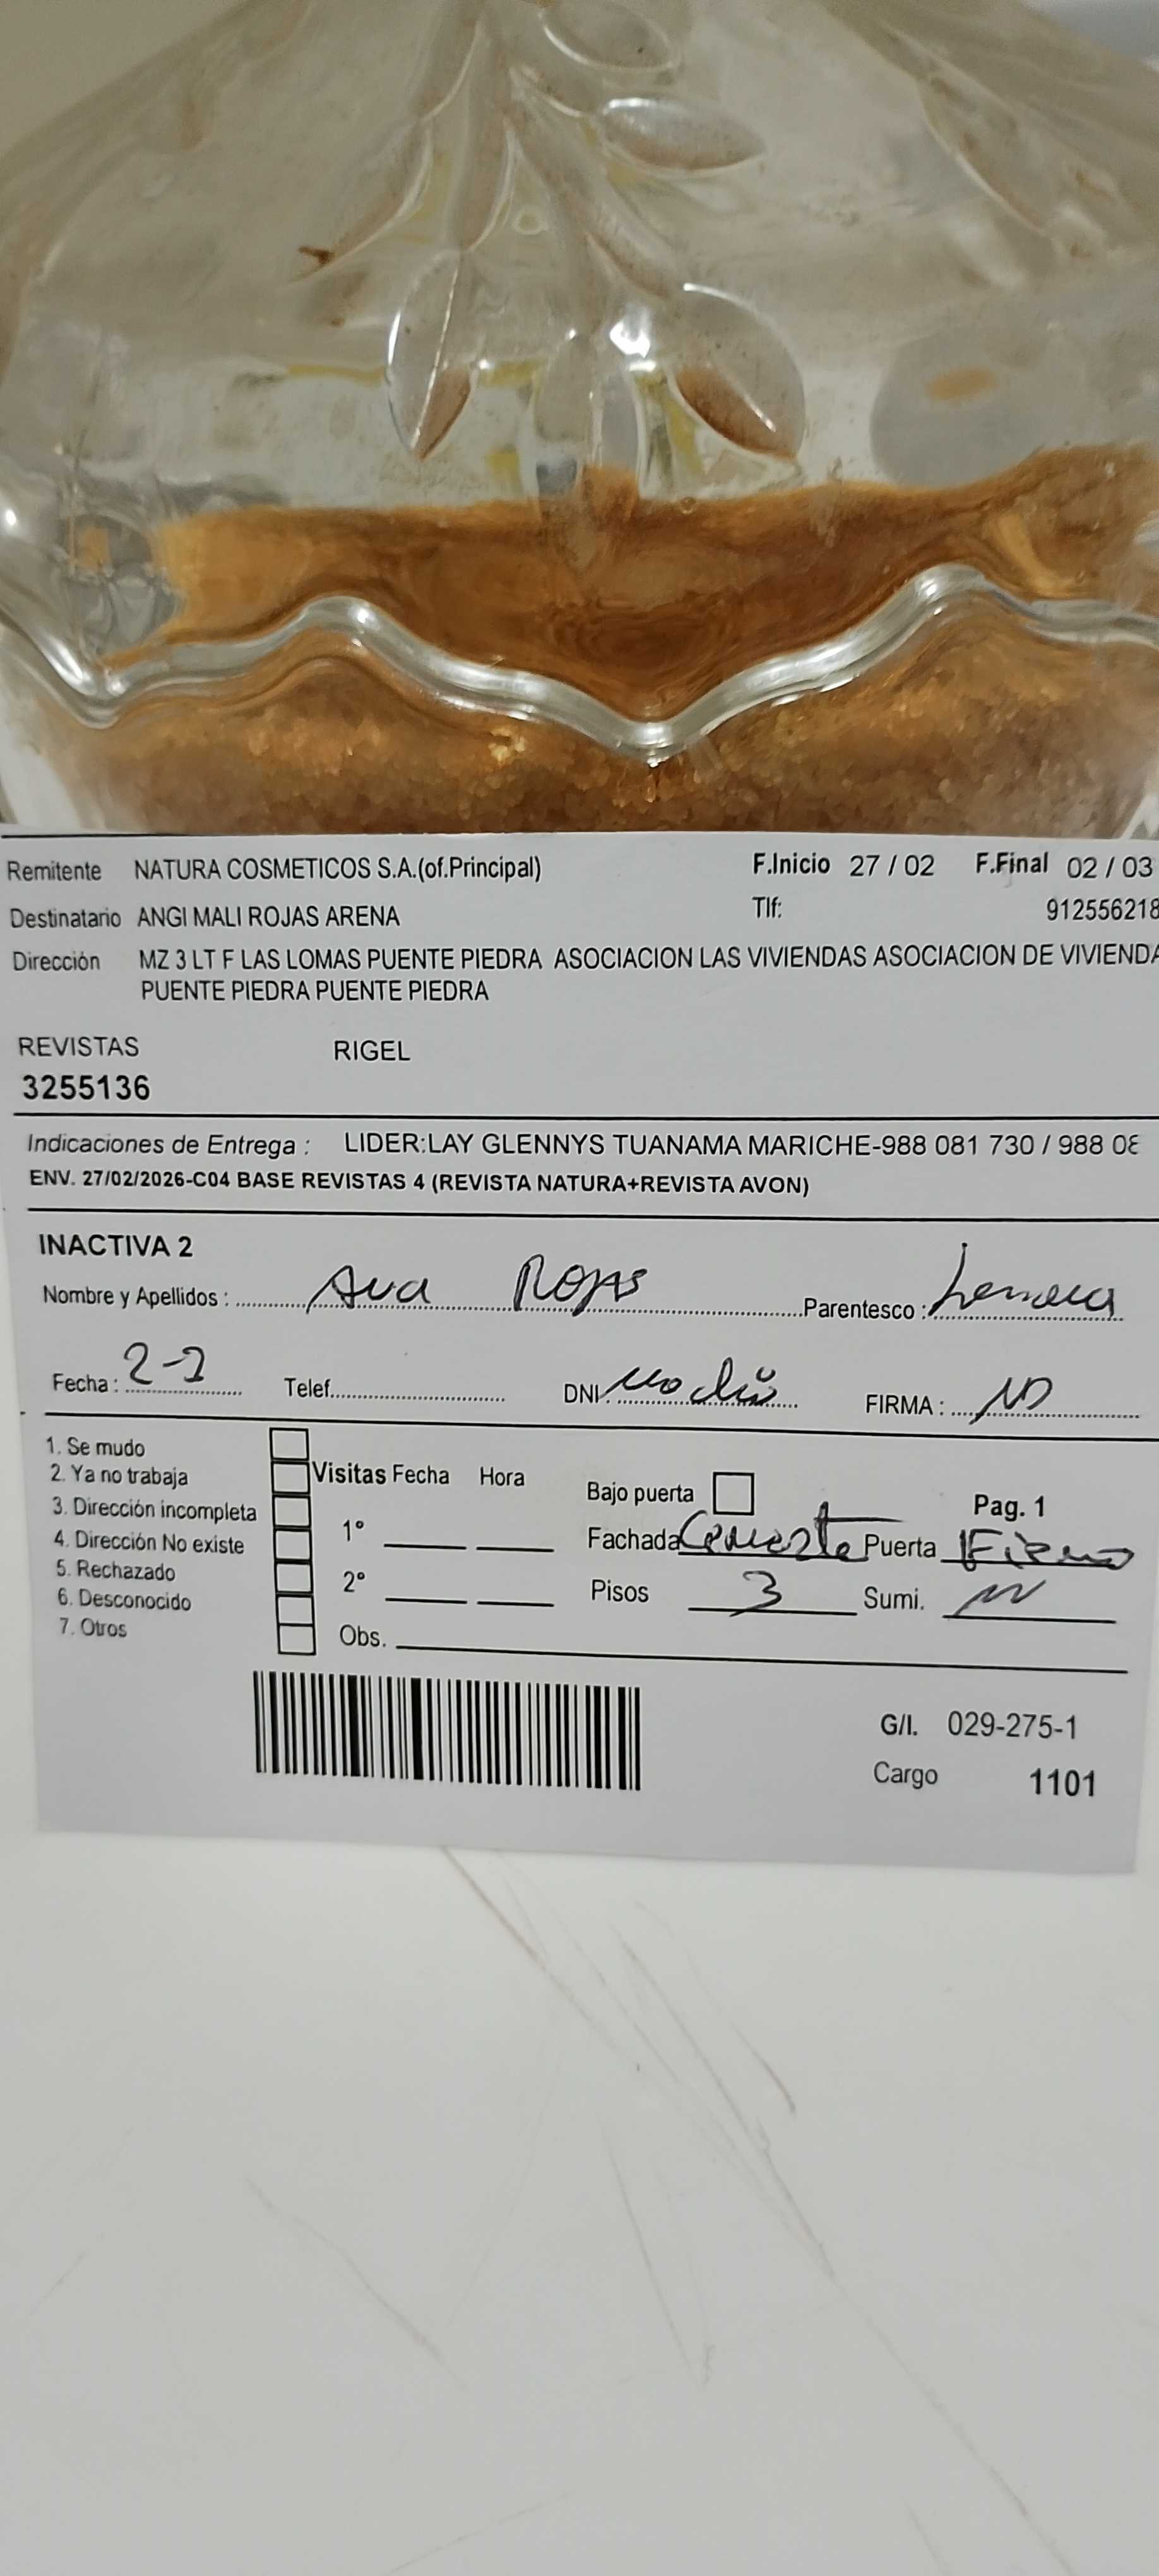 Remitente NATURA COSMETICOS S.A.(of.Principal) F.Inicio 27 / 02 F.Final 02 / 03
Destinatario ANGI MALI ROJAS ARENA Tlf: 912556218
Dirección MZ 3 LT F LAS LOMAS PUENTE PIEDRA ASOCIACION LAS VIVIENDAS ASOCIACION DE VIVIENDA
PUENTE PIEDRA PUENTE PIEDRA
REVISTAS RIGEL
3255136
Indicaciones de Entrega : LIDER:LAY GLENNYS TUANAMA MARICHE-988 081 730 / 988 08
ENV. 27/02/2026-C04 BASE REVISTAS 4 (REVISTA NATURA+REVISTA AVON)
INACTIVA 2
Nombre y Apellidos : Ana Rojas Parentesco :
Fecha : Telef. DNI: no dio FIRMA :
1. Se mudo
2. Ya no trabaja Visitas Fecha Hora Bajo puerta
3. Dirección incompleta Pag. 1
4. Dirección No existe 1° Fachada Celeste Puerta Fierro
5. Rechazado
6. Desconocido 2° Pisos 3 Sumi.
7. Otros Obs.
G/I. 029-275-1
Cargo 1101